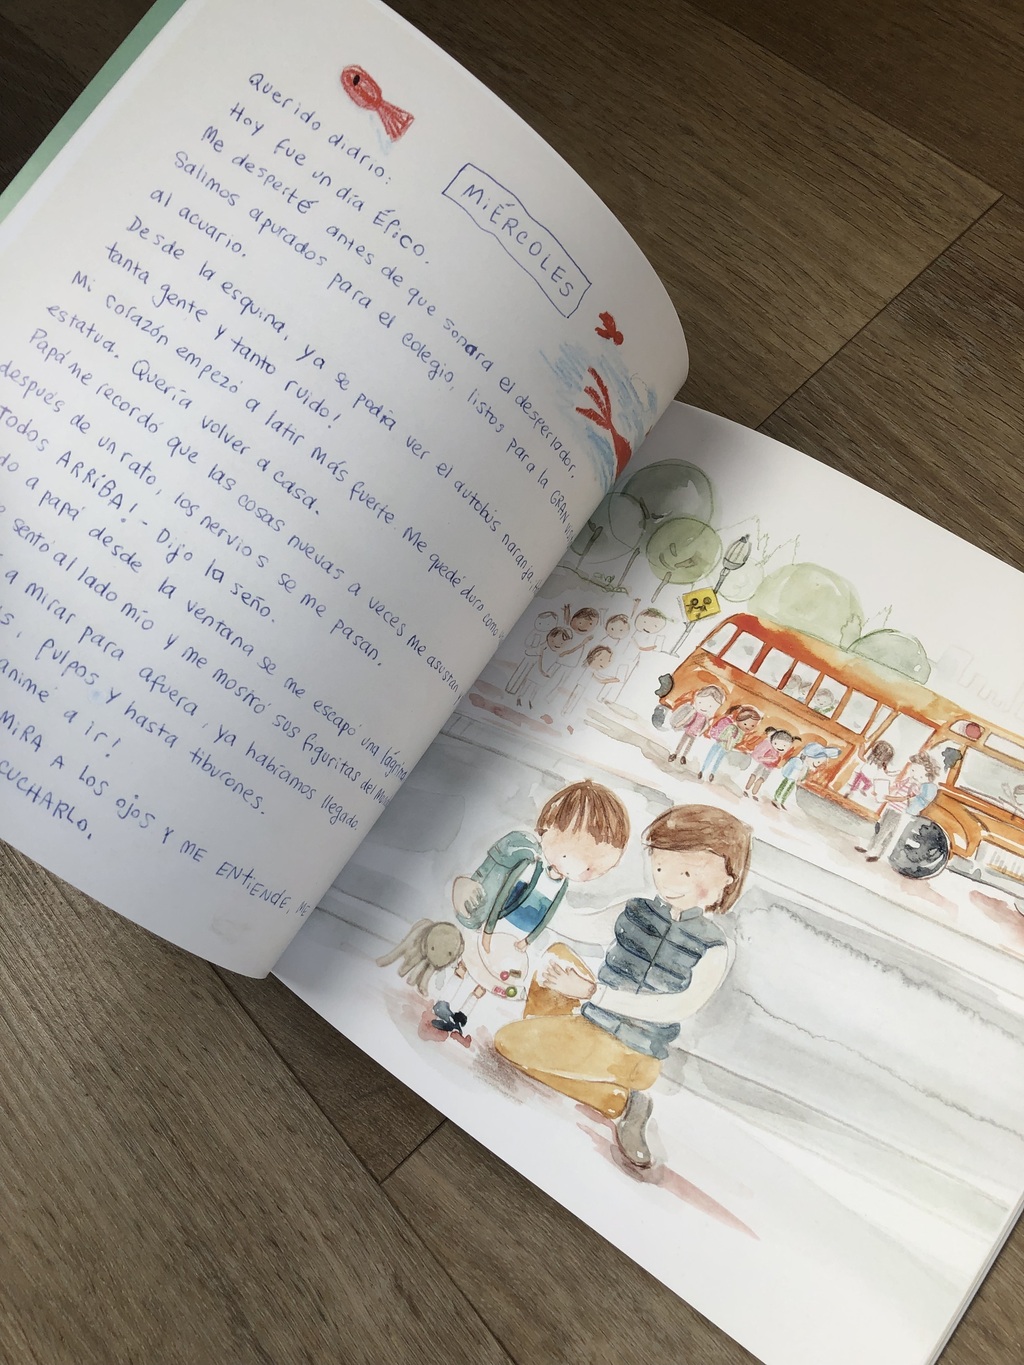 Querido diario:
MiÉRCOLES
Hoy fue un día ÉPiCO.
Me desperté antes de que sonara el despertador.
Salimos apurados para el colegio, listos para la GRAN
al acuario.
Desde la esquina, ya se podía ver el autobús naranja,
tanta gente y tanto ruido!
Mi corazón empezó a latir más fuerte. Me quedé duro como
estatua. Quería volver a casa.
Papá me recordó que las cosas nuevas a veces me asustan
después de un rato, los nervios se me pasan.
Todos ARRiBA! - Dijo la seño.
a papá desde la ventana se me escapó una lágrima
sentó al lado mío y me mostró sus figuritas del
a mirar para afuera, ya habíamos llegado.
pulpos y hasta tiburones.
animé a ir!
MiRA A LOS OJOS Y ME ENTiENDE, ME
CUCHARLO.